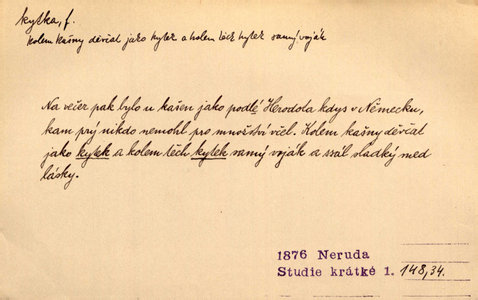 kytka, f.
kolem kašny děvčat jako kytek a kolem těch kytek samý voják
Na večer pak bylo u kašen jako podlé Herodota kdys v Německu,
kam prý nikdo nemohl pro množství včel. Kolem kašny děvčat
jako kytek a kolem těch kytek samý voják a ssál sladký med
lásky.
1876 Neruda
Studie krátké 1. 148,34.